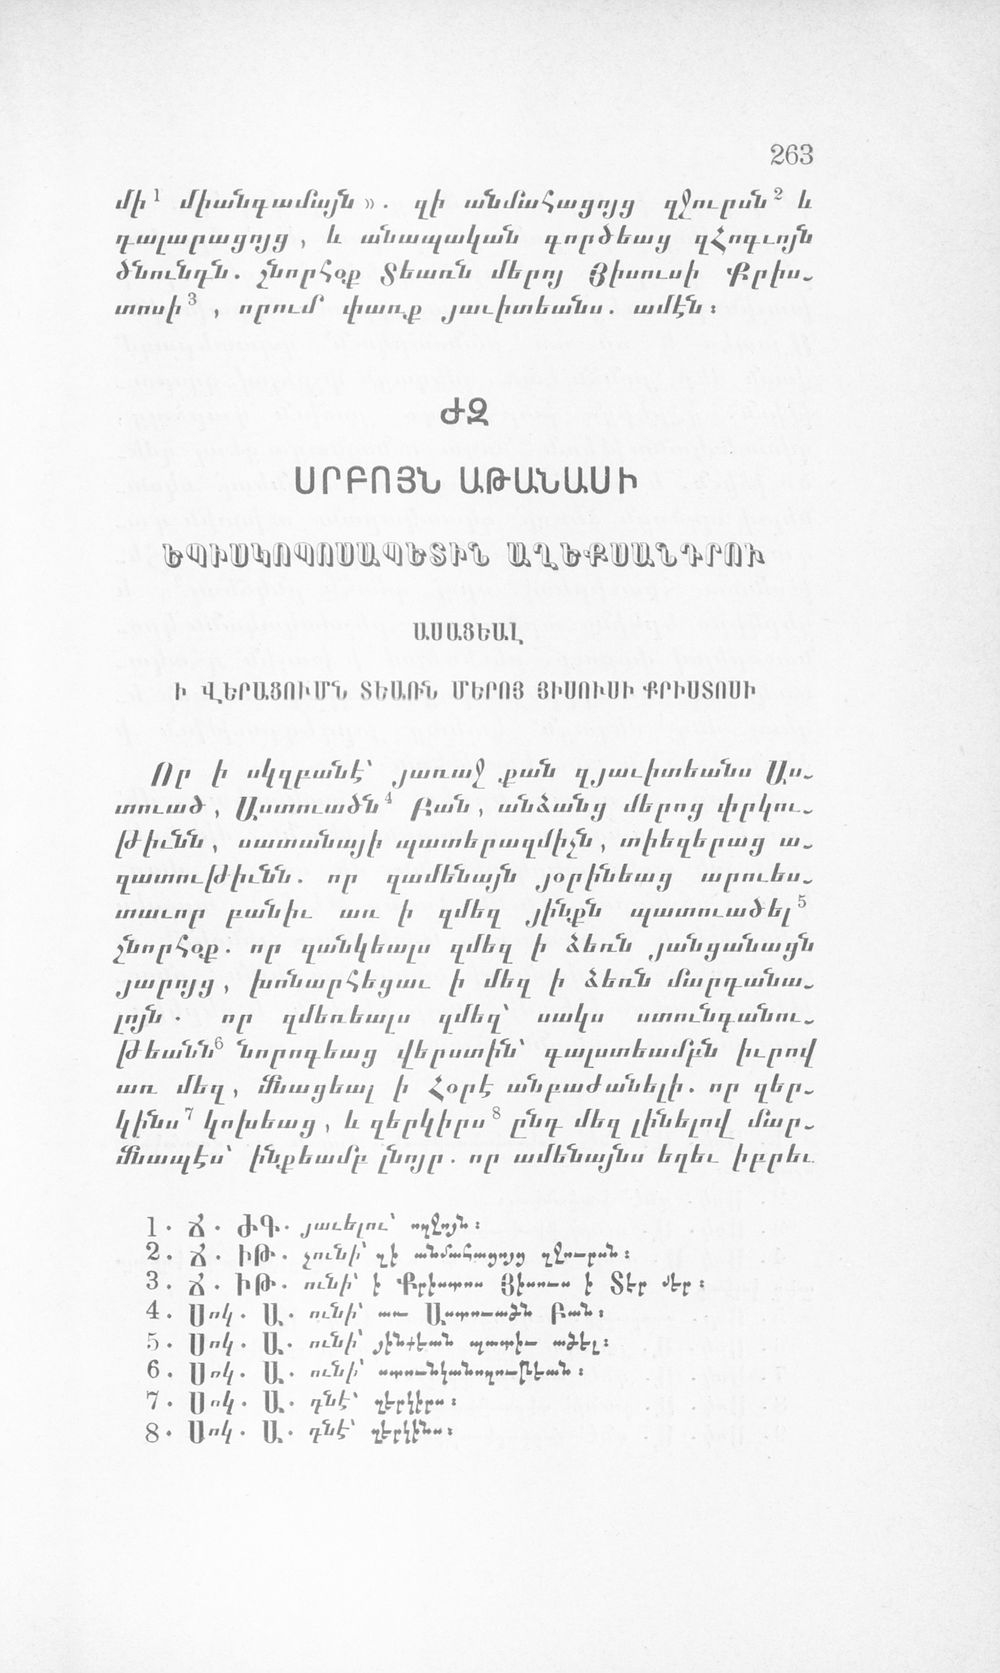 263
մի¹ միանգամայն». զի անմահացոյց զջուրսն² և
դալարացոյց, և անապական գործեաց զՀոգւոյն
ծնունդն. շնորհօք Տեառն մերոյ Յիսուսի Քրիս-
տոսի³, որում փառք յաւիտեանս. ամէն:
ԺԶ
ՍՐԲՈՅՆ ԱԹԱՆԱՍԻ
ԵՊԻՍԿՈՊՈՍԱՊԵՏԻՆ ԱՂԵՔՍԱՆԴՐՈՒ
ԱՍԱՑԵԱԼ
Ի ՎԵՐԱՑՈՒՄՆ ՏԵԱՌՆ ՄԵՐՈՅ ՅԻՍՈՒՍԻ ՔՐԻՍՏՈՍԻ
Որ ի սկզբանէ՝ յառաջ քան զյաւիտեանս Աս-
տուած, Աստուածն⁴ Բան, անձանց մերոց փրկու-
թիւնն, սատանայի պատերազմիչն, տիեզերաց ա-
զատութիւնն. որ զամենայն յօրինեաց արուես-
տաւոր բանիւ առ ի զմեզ յինքն պատուածել⁵
շնորհօք. որ զանկեալս զմեզ ի ձեռն յանցանացն
յարոյց, խոնարհեցաւ ի մեզ ի ձեռն մարդանա-
լոյն. որ զմեռեալս զմեզ՝ սակս ստունգանու-
թեանն⁶ նորոգեաց վերստին՝ գալստեամբն իւրով
առ մեզ, մնացեալ ի Հօրէ անբաժանելի. որ զեր-
կինս⁷ կոխեաց, և զերկիրս⁸ ընդ մեզ լինելով մար-
մնապէս՝ ինքեամբ լնոյր. որ ամենայնս եղեւ իբրեւ
1. Ճ. ԺԳ. յաւելու՝ ողջոյն:
2. Ճ. ԻԹ. չունի՝ զի անմահացոյց զջուրսն:
3. Ճ. ԻԹ. ունի՝ ի Քրիստոս Յիսուս ի Տէր մեր:
4. Սոկ. Ա. ունի՝ առ Աստուածն Բան:
5. Սոկ. Ա. ունի՝ յինքեան պատիւ ածել:
6. Սոկ. Ա. ունի՝ ստունկանողութեան:
7. Սոկ. Ա. դնէ՝ զերկիրս:
8. Սոկ. Ա. դնէ՝ զերկինս: